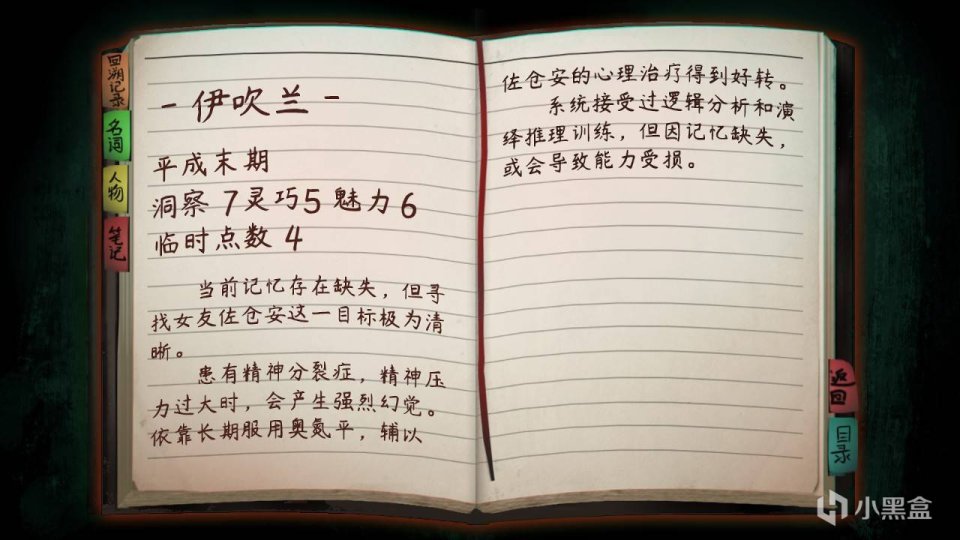 回溯记录
名词
人物
笔记
- 伊吹兰 -
平成末期
洞察 7 灵巧 5 魅力 6
临时点数 4
当前记忆存在缺失，但寻
找女友佐仓安这一目标极为清
晰。
患有精神分裂症，精神压
力过大时，会产生强烈幻觉。
依靠长期服用奥氮平，辅以
佐仓安的心理治疗得到好转。
系统接受过逻辑分析和演
绎推理训练，但因记忆缺失，
或会导致能力受损。
返回
目录
小黑盒